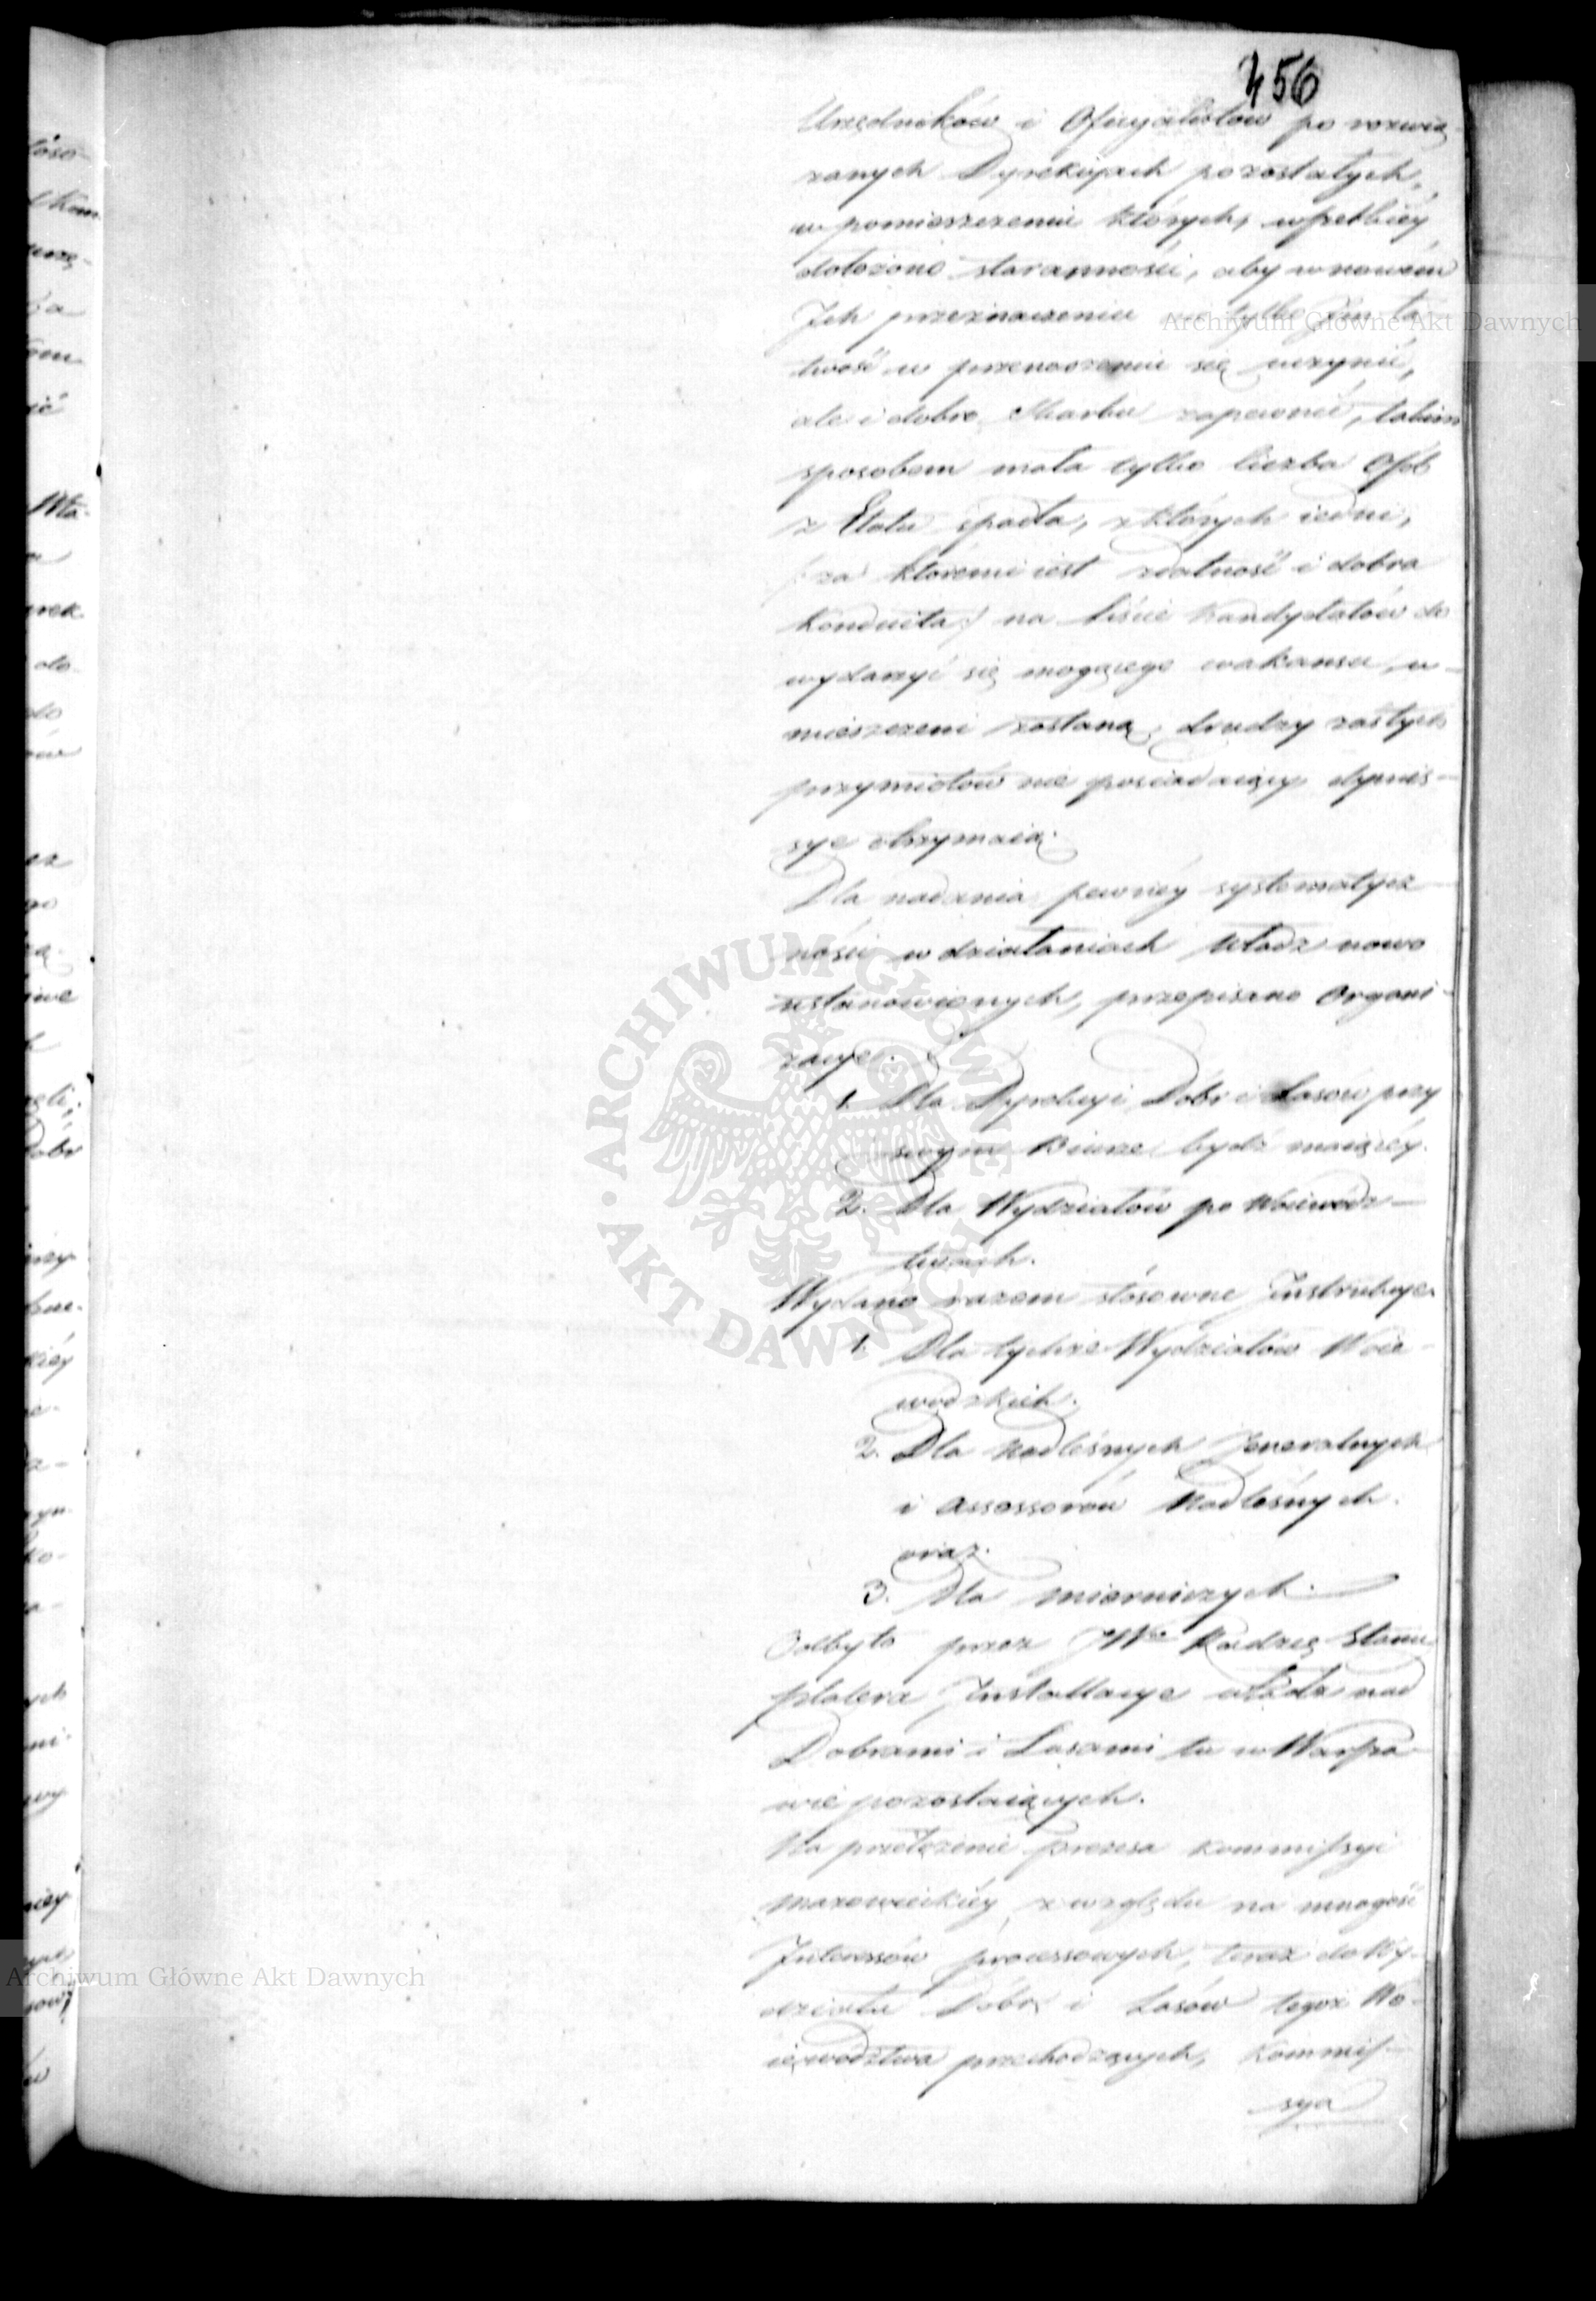 456
Urzędników i Oficyalistów po rozwią-
zanych Dyrekcyach pozostałych,
w pomieszczeniu których, wszelkiéy
dołożono staranności, aby w nowém
Jch przeznaczeniu nie tylko Jm ła-
twość w przenoszeniu się uczynić,
ale i dobro Skarbu zapewnić, takim
sposobem mała tylko liczba Osób
z Etatu spadła, z których iedni,
/: za któremi iest zdatność i dobra
konduita :/ na liście kandydatów do
wydarzyć się mogącego wakansu, u-
mieszczeni zostaną, drudzy zaś tych
przymiotów nie posiadaiący dymis-
sye otrzymaią.
Dla nadania pewnéy systematycz-
ności w działaniach Władz nowo
ustanowionych, przepisano Organi-
zacye.
1. Dla Dyrekcyi Dóbr i Lasów przy
swym Biurze bydź maiącéy.
2. Dla Wydziałów po Woiewódz-
twach.
Wydano razem stósowne Jnstrukcye.
1. Dla tychże Wydziałów Woie-
wódzkich.
2. Dla Nadleśnych Jeneralnych
i Assessorów Nadleśnych.
oraz.
3. Dla Mierniczych.
Odbyto przez JWo Radzcę Stanu
Platera Jnstallacye władz nad
Dobrami i Lasami tu w Warsza-
wie pozostaiących.
Na przełożenie Prezesa Kommissyi
Mazowieckiéy z względu na mnogość
Jnteressów processowych, teraz do Wy-
działu Dóbr i Lasów tegoż Wo-
iewództwa przechodzących, Kommis-
sya
Archiwum Główne Akt Dawnych
ARCHIWUM GŁÓWNE AKT DAWNYCH
Archiwum Główne Akt Dawnych